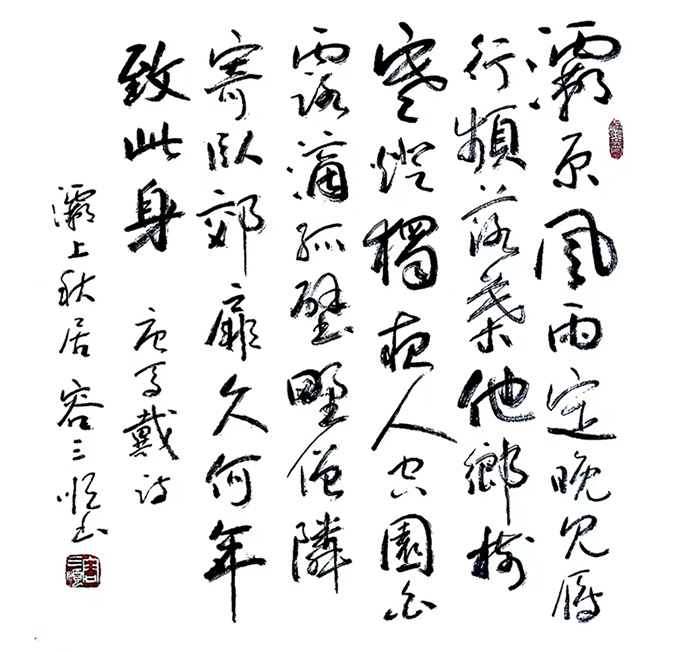 灞原風雨定晚見雁
行頻落葉他鄉樹
寒燈獨夜人空園白
露滴孤壁野僧隣
寄臥郊扉久何年
致此身 唐馬戴詩
灞上秋居 容三順書
容三順